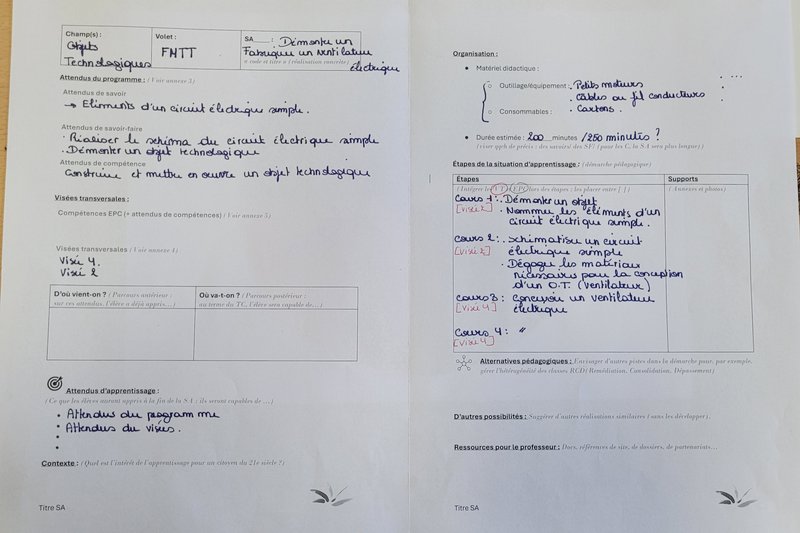 Champ(s) :
Objets
Technologiques
Volet :
FMTT
SA____ : Démonter un
Fabriquer un ventilateur
« code et titre » (réalisation concrète)
électrique
Attendus du programme : (Voir annexe 3)
Attendus de savoir
→ Eléments d'un circuit électrique simple.
Attendus de savoir-faire
· Réaliser le schéma du circuit électrique simple
· Démonter un objet technologique
Attendus de compétence
Construire et mettre en œuvre un objet technologique
Visées transversales :
Compétences EPC (+ attendus de compétences) (Voir annexe 5)
Visées transversales (Voir annexe 4)
Visé 4.
Visé 2
D'où vient-on ? (Parcours antérieur :
sur ces attendus, l'élève a déjà appris…)
Où va-t-on ? (Parcours postérieur :
au terme du TC, l'élève sera capable de…)
Attendus d'apprentissage :
(Ce que les élèves auront appris à la fin de la SA : ils seront capables de …)
• Attendus du programme
• Attendus du visées.
•
•
Contexte : (Quel est l'intérêt de l'apprentissage pour un citoyen du 21e siècle ?)
Titre SA
Organisation :
• Matériel didactique :
○ Outillage/équipement : · Petits moteurs
· Câbles ou fil conducteurs
○ Consommables : · Cartons.
• Durée estimée : 200 minutes /250 minutes ?
Étapes de la situation d'apprentissage : (démarche pédagogique)
Étapes
(Intégrer les VT – EPC lors des étapes : les placer entre [ ])
Supports
( Annexes et photos)
Cours 1 : · Démonter un objet
[Visé 2] · Nommer les éléments d'un
circuit électrique simple.
Cours 2 : · schématiser un circuit
[Visé 2] électrique simple
· Dégager les matériaux
nécessaires pour la conception
d'un O.T. (ventilateur)
Cours 3 : concevoir un ventilateur
[Visé 4] électrique
Cours 4 : "
[Visé 4]
Alternatives pédagogiques : Envisager d'autres pistes dans la démarche pour, par exemple,
gérer l'hétérogénéité des classes RCD( Remédiation, Consolidation, Dépassement)
D'autres possibilités : Suggérer d'autres réalisations similaires ( sans les développer) .
Ressources pour le professeur : Docs, références de site, de dossiers, de partenariats…
Titre SA